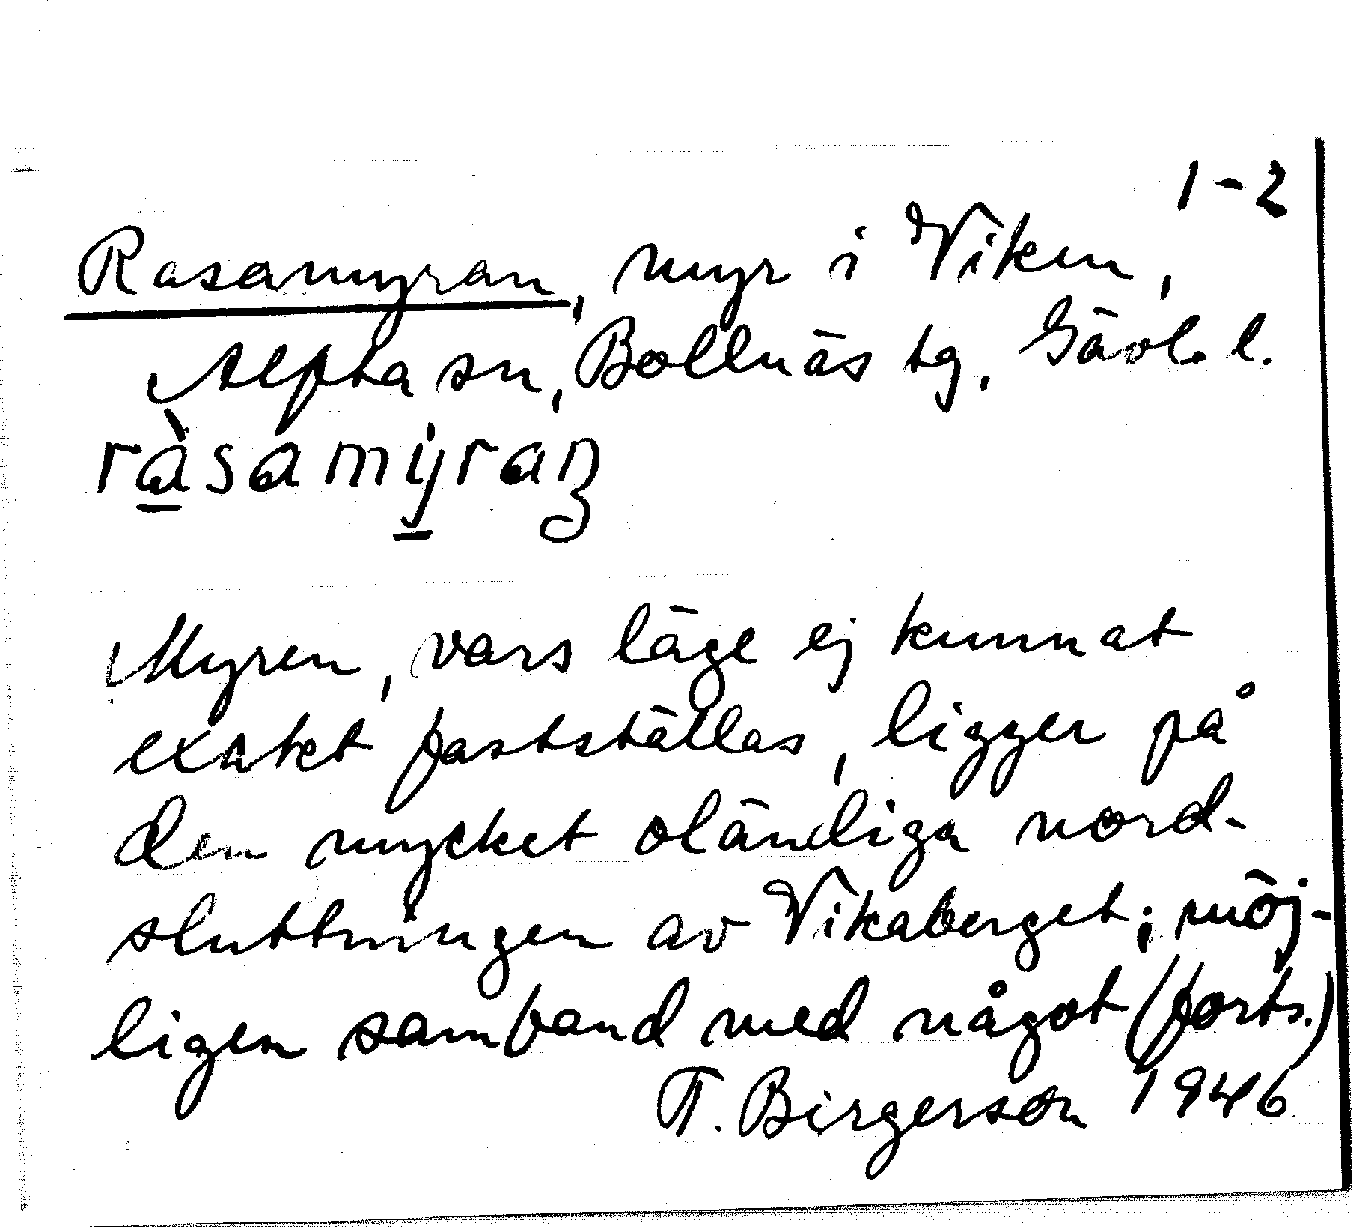 1-2
Rasamyran, myr i Viken,
Alfta sn, Bollnäs tg, Gävl. l.
ràsamýraŋ
Myren, vars läge ej kunnat
exakt fastställas, ligger på
den mycket oländiga nord-
sluttningen av Vikaberget; möj-
ligen samband med något (forts.)
T. Birgerson 1946